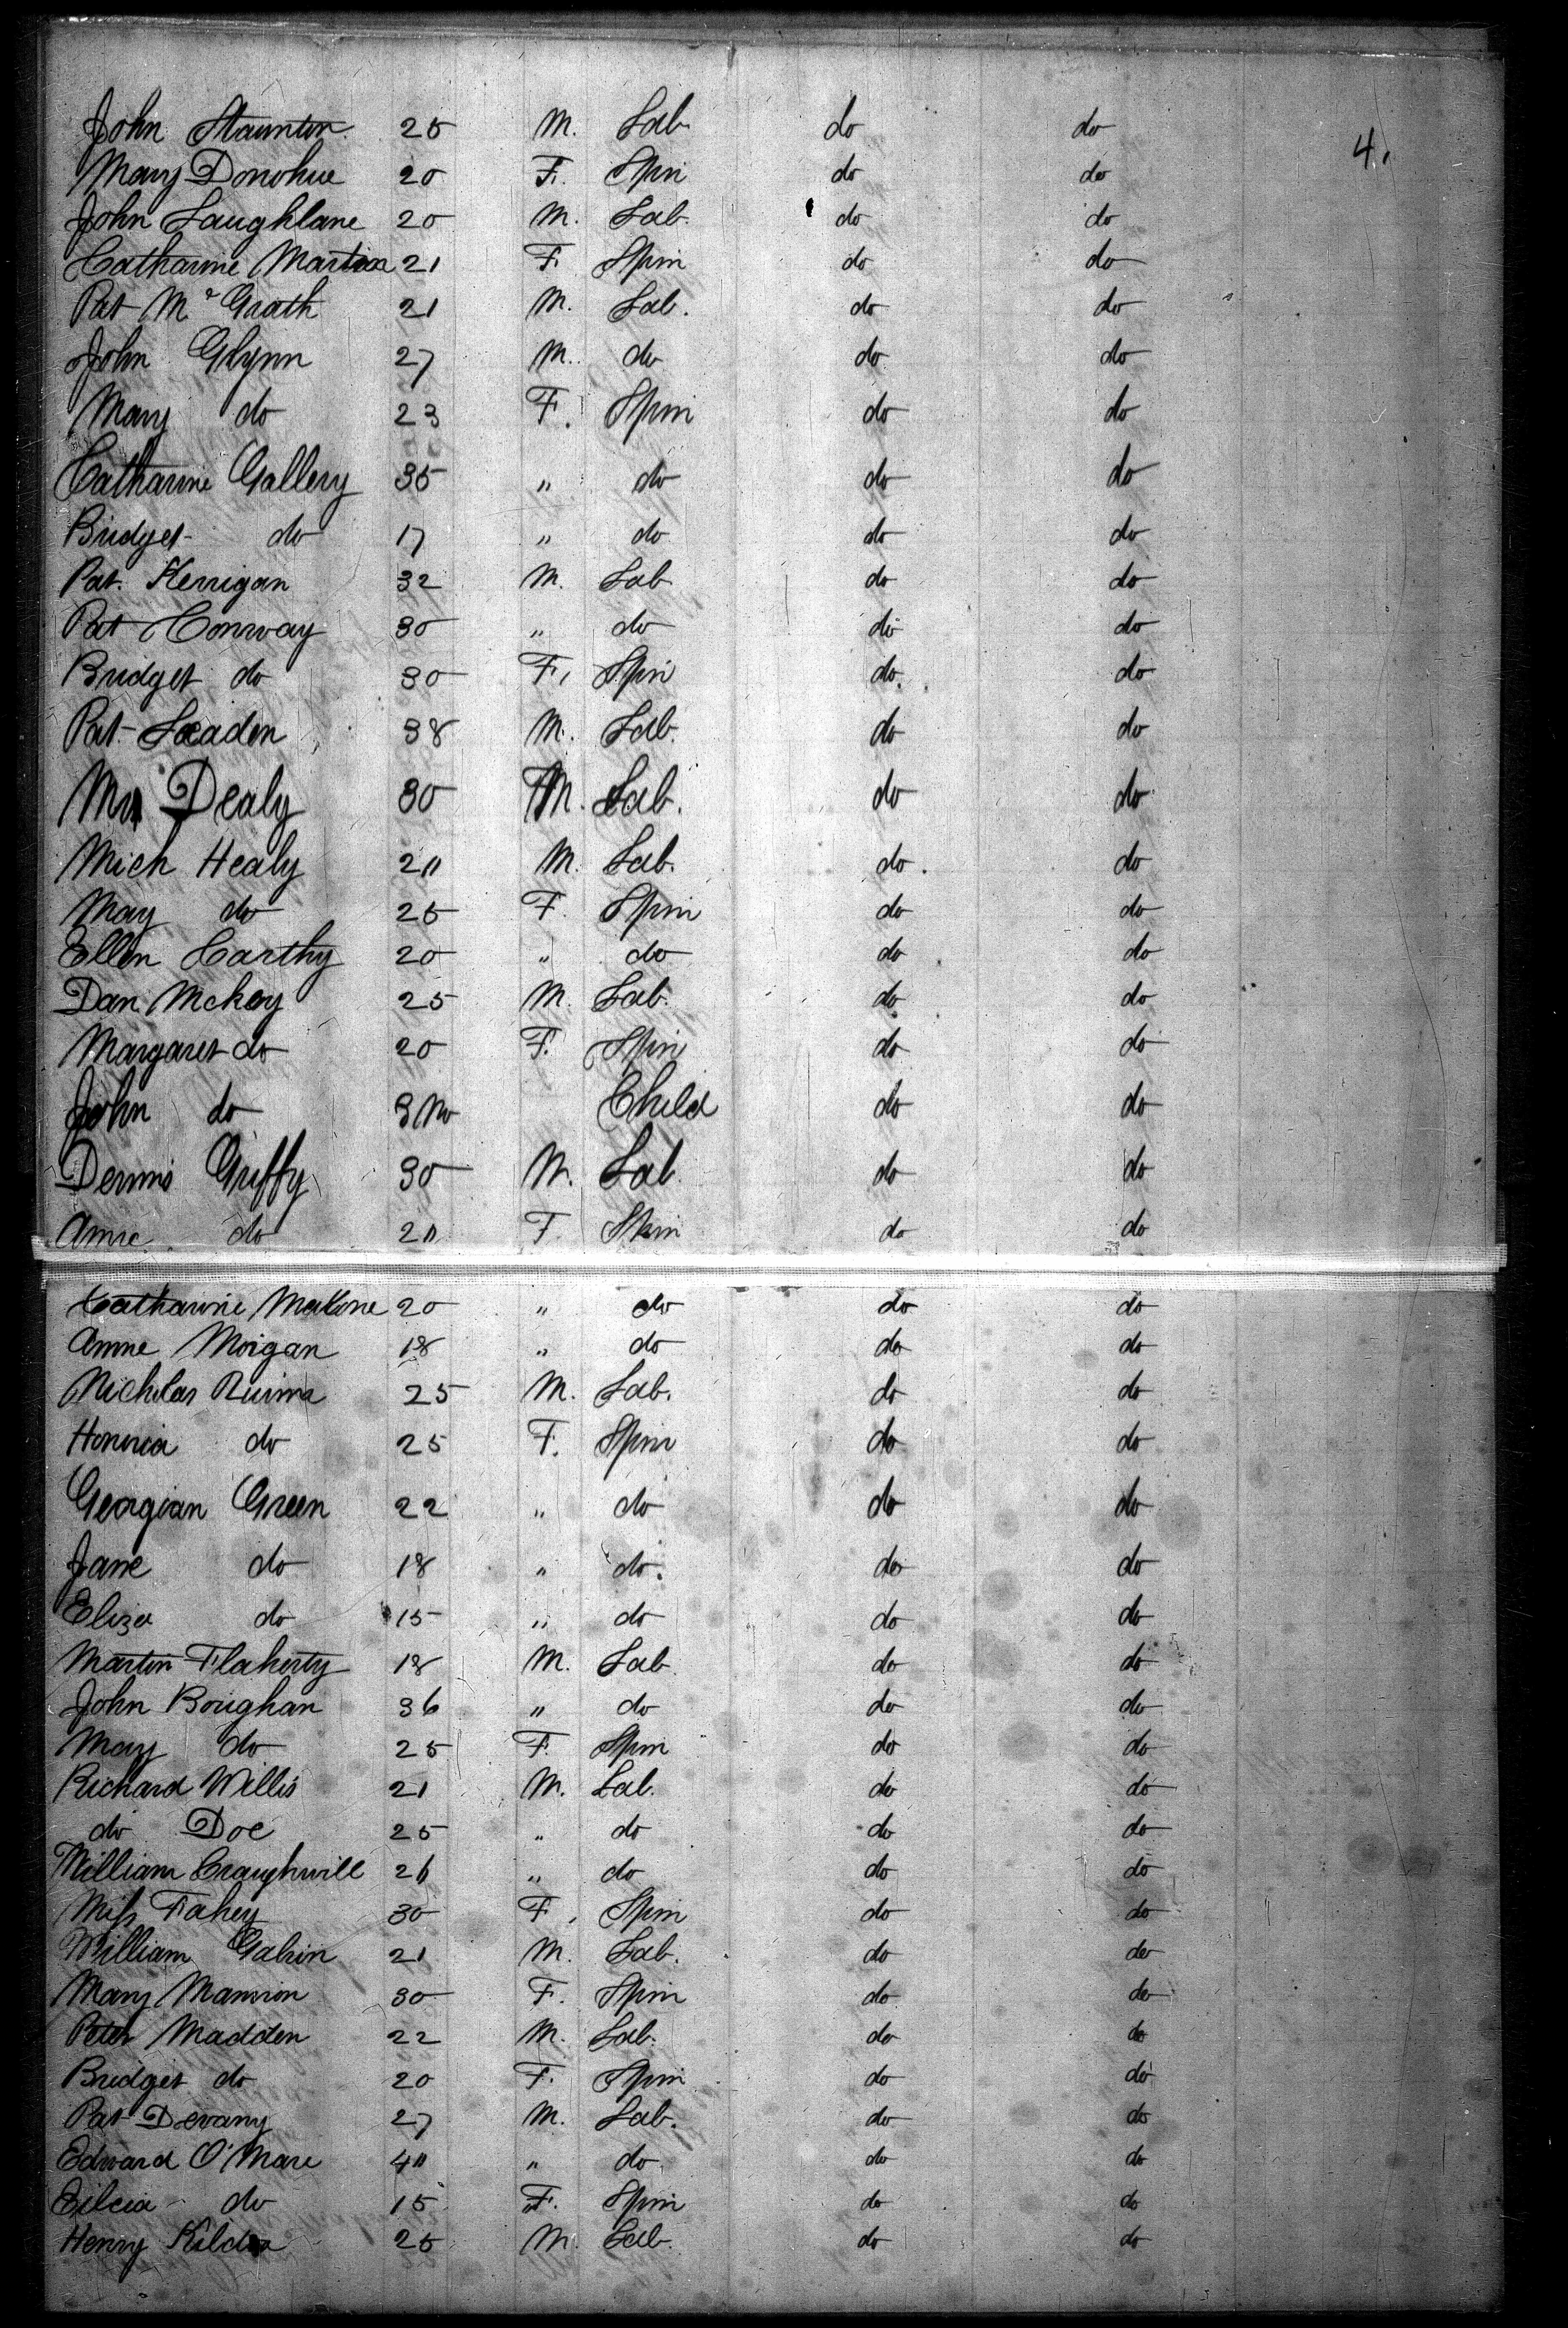 4.
John Staunton 25 M. Lab. do do
Mary Donohue 20 F. Spin do do
John Laughlane 20 M. Lab. do do
Catharine Martin 21 F. Spin do do
Pat McGrath 21 M. Lab. do do
John Glynn 27 M. do do do
Mary do 23 F. Spin do do
Catharine Gallery 35 " do do do
Bridget do 17 " do do do
Pat. Kerrigan 32 M. Lab do do
Pat Conway 30 " do do do
Bridget do 30 F. Spin do do
Pat Leaden 38 M. Lab. do do
Dealy 30 M. Lab. do do
Mich Healy 2 M. Lab. do do
May do 25 F. Spin do do
Ellen Carthy 20 " do do do
Dan McKay 25 M. Lab. do do
Margaret do 20 F. Spin do do
John do 9 Mo Child do do
Dennis Griffy 30 M. Lab do do
Anne do 2 F. Spin do do
Catharine Malone 20 " do do do
Anne Morgan 18 " do do do
Nicholas 25 M. Lab. do do
Honoria do 25 F. Spin do do
Georgian Green 22 " do do do
Jane do 18 " do. do do
Eliza do 15 " do do do
Martin Flaherty 18 M. Lab do do
John Boughan 36 " do do do
May do 25 F. Spin do do
Richard Willis 21 M. Lab. do do
do Doe 25 " do do do
William Craughwill 26 " do do do
Miss Fahey 30 F. Spin do do
William Galvin 21 M. Lab. do do
Mary Mannion 30 F. Spin do do
Peter Madden 22 M. Lab. do do
Bridget do 20 F. Spin do do
Pat Devany 27 M. Lab. do do
Edward O'Mare 4 " do do do
do 15 F. Spin do do
Henry 25 M. Lab. do do